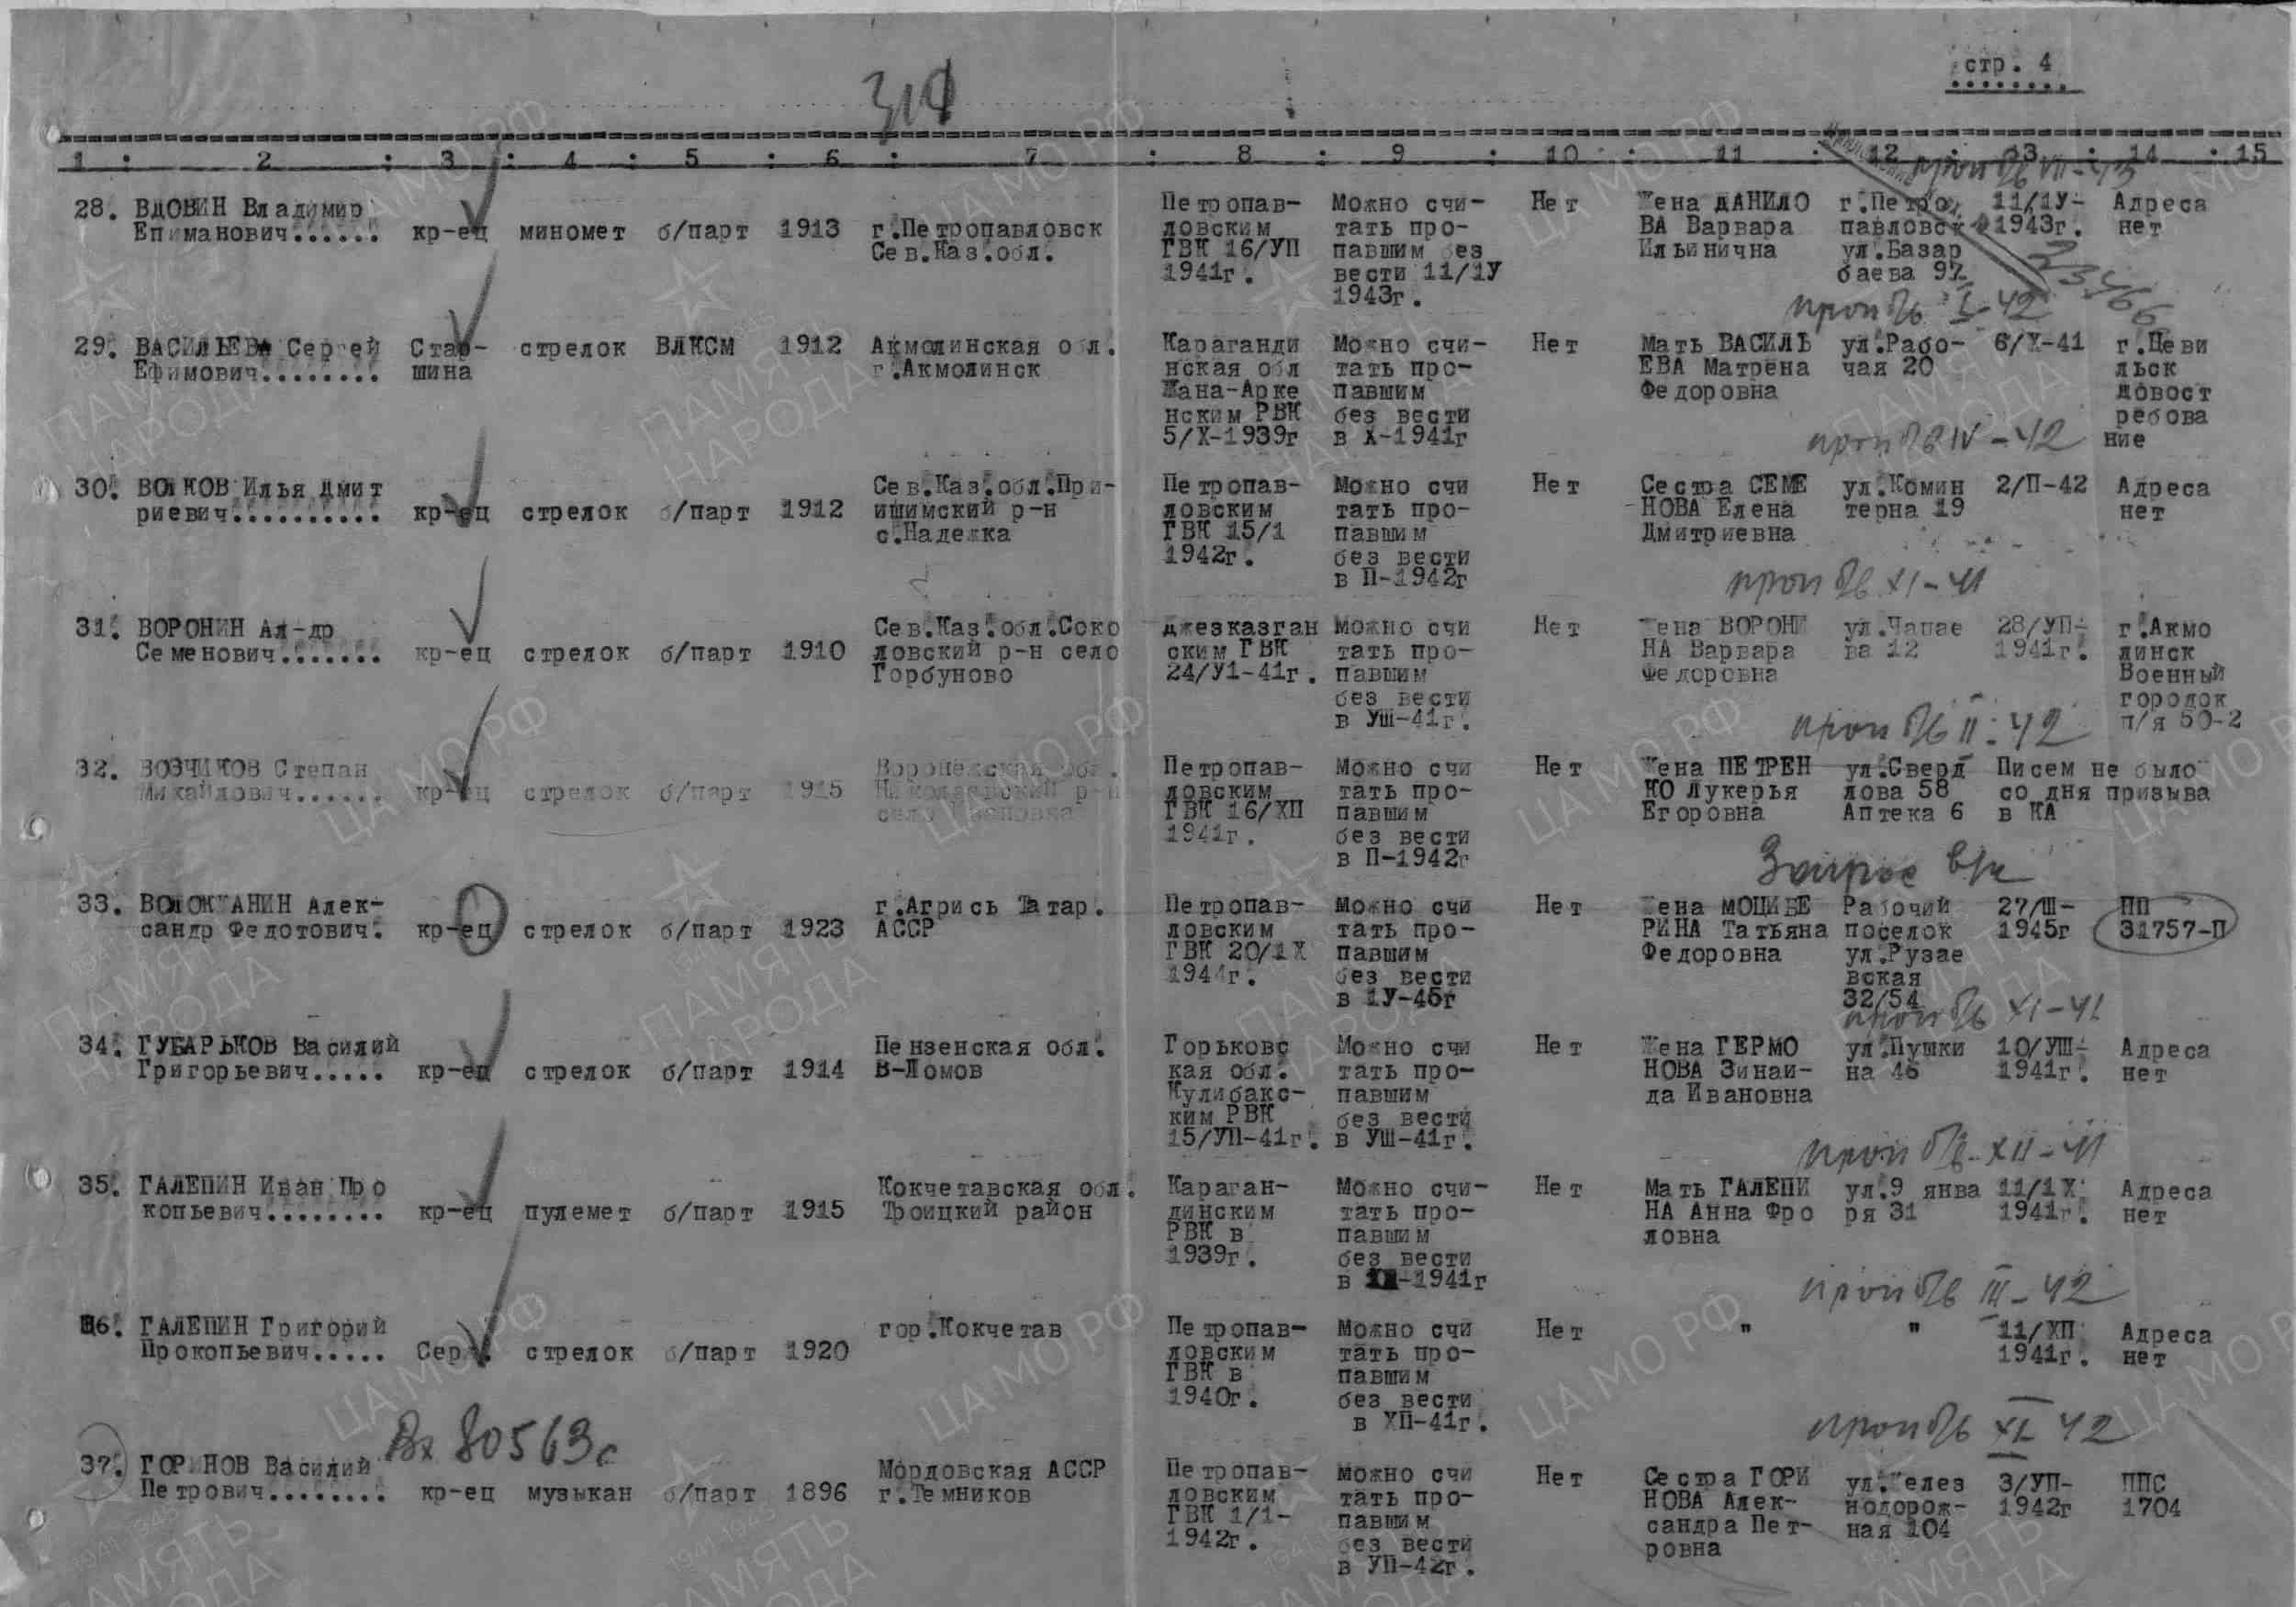 стр. 4
310
1 : 2 : 3 : 4 : 5 : 6 : 7 : 8 : 9 : 10 : 11 : 12 : 13 : 14 : 15
проп б/в VII-43
28. ВДОВИН Владимир Епиманович...... кр-ец миномет б/парт 1913 г.Петропавловск Сев.Каз.обл. Петропав-ловским ГВК 16/УП 1941г. Можно счи-тать про-павшим без вести 11/1У 1943г. Нет Жена ДАНИЛО ВА Варвара Ильинична г.Петро павловск ул.Базар баева 97 11/1У-1943г. Адреса нет
23466
проп б/в I-42
29. ВАСИЛЬЕВ Сергей Ефимович........ Стар-шина стрелок ВЛКСМ 1912 Акмолинская обл. г.Акмолинск Караганди нская обл Жана-Арке нским РВК 5/X-1939г Можно счи-тать про-павшим без вести в X-1941г Нет Мать ВАСИЛЬ ЕВА Матрена Федоровна ул.Рабо-чая 20 6/X-41 г.Цеви льск довост ребова ние
проп б/в IV-42
30. ВОЛКОВ Илья Дмит риевич.......... кр-ец стрелок б/парт 1912 Сев.Каз.обл.При-ишимский р-н с.Надежка Петропав-ловским ГВК 15/1 1942г. Можно счи тать про-павшим без вести в П-1942г Нет Сестра СЕМЕ -НОВА Елена Дмитриевна ул.Комин терна 19 2/П-42 Адреса нет
проп б/в XI-41
31. ВОРОНИН Ал-др Семенович....... кр-ец стрелок б/парт 1910 Сев.Каз.обл.Соко ловский р-н село Горбуново джезказган ским ГВК 24/У1-41г. Можно счи тать про-павшим без вести в УШ-41г. Нет Жена ВОРОНИ НА Варвара Федоровна ул.Чапае ва 12 28/УП-1941г. г.Акмо линск Военный городок п/я 50-2
проп б/в II-42
32. ВОЗЧИКОВ Степан Михайлович...... кр-ец стрелок б/парт 1915 Воронежская обл. Николаевский р-н село Петропав-ловским ГВК 16/ХП 1941г. Можно счи тать про-павшим без вести в П-1942г Нет Жена ПЕТРЕН КО Лукерья Егоровна ул.Сверд лова 58 Аптека 6 Писем не было со дня призыва в КА
Запрос
33. ВОЛОКЖАНИН Алек-сандр Федотович. кр-ец стрелок б/парт 1923 г.Агрись Татар. АССР Петропав-ловским ГВК 20/1X 1941г. Можно счи тать про-павшим без вести в 1У-45г Нет Жена МОЦИБЕ РИНА Татьяна Федоровна Рабочий поселок ул.Рузае вская 32/54 27/Ш-1945г ПП 31757-П
проп б/в XI-41
34. ГУБАРЬКОВ Василий Григорьевич..... кр-ец стрелок б/парт 1914 Пензенская обл. В-Ломов Горьковс кая обл. Кулибакс-ким РВК 15/УП-41г. Можно счи тать про-павшим без вести в УШ-41г. Нет Жена ГЕРМО НОВА Зинаи-да Ивановна ул.Пушки на 46 10/УШ-1941г. Адреса нет
проп б/в XII-41
35. ГАЛЕПИН Иван Про копьевич........ кр-ец пулемет б/парт 1915 Кокчетавская обл. Троицкий район Караган-динским РВК в 1939г. Можно счи-тать про-павшим без вести в -1941г Нет Мать ГАЛЕПИ НА Анна Фро ловна ул.9 янва ря 31 11/1X 1941г. Адреса нет
проп б/в III-42
36. ГАЛЕПИН Григорий Прокопьевич..... Сер . стрелок б/парт 1920 гор.Кокчетав Петропав-ловским ГВК в 1940г. Можно счи тать про-павшим без вести в ХП-41г. Нет " " 11/ХП 1941г. Адреса нет
Вх 80563с
проп б/в XI 42
37. ГОРИНОВ Василий Петрович........ кр-ец музыкан б/парт 1896 Мордовская АССР г.Темников Петропав-ловским ГВК 1/1-1942г. Можно счи тать про-павшим без вести в УП-42г. Нет Сестра ГОРИ НОВА Алек-сандра Пет-ровна ул.Желез нодорож-ная 104 3/УП-1942г ППС 1704